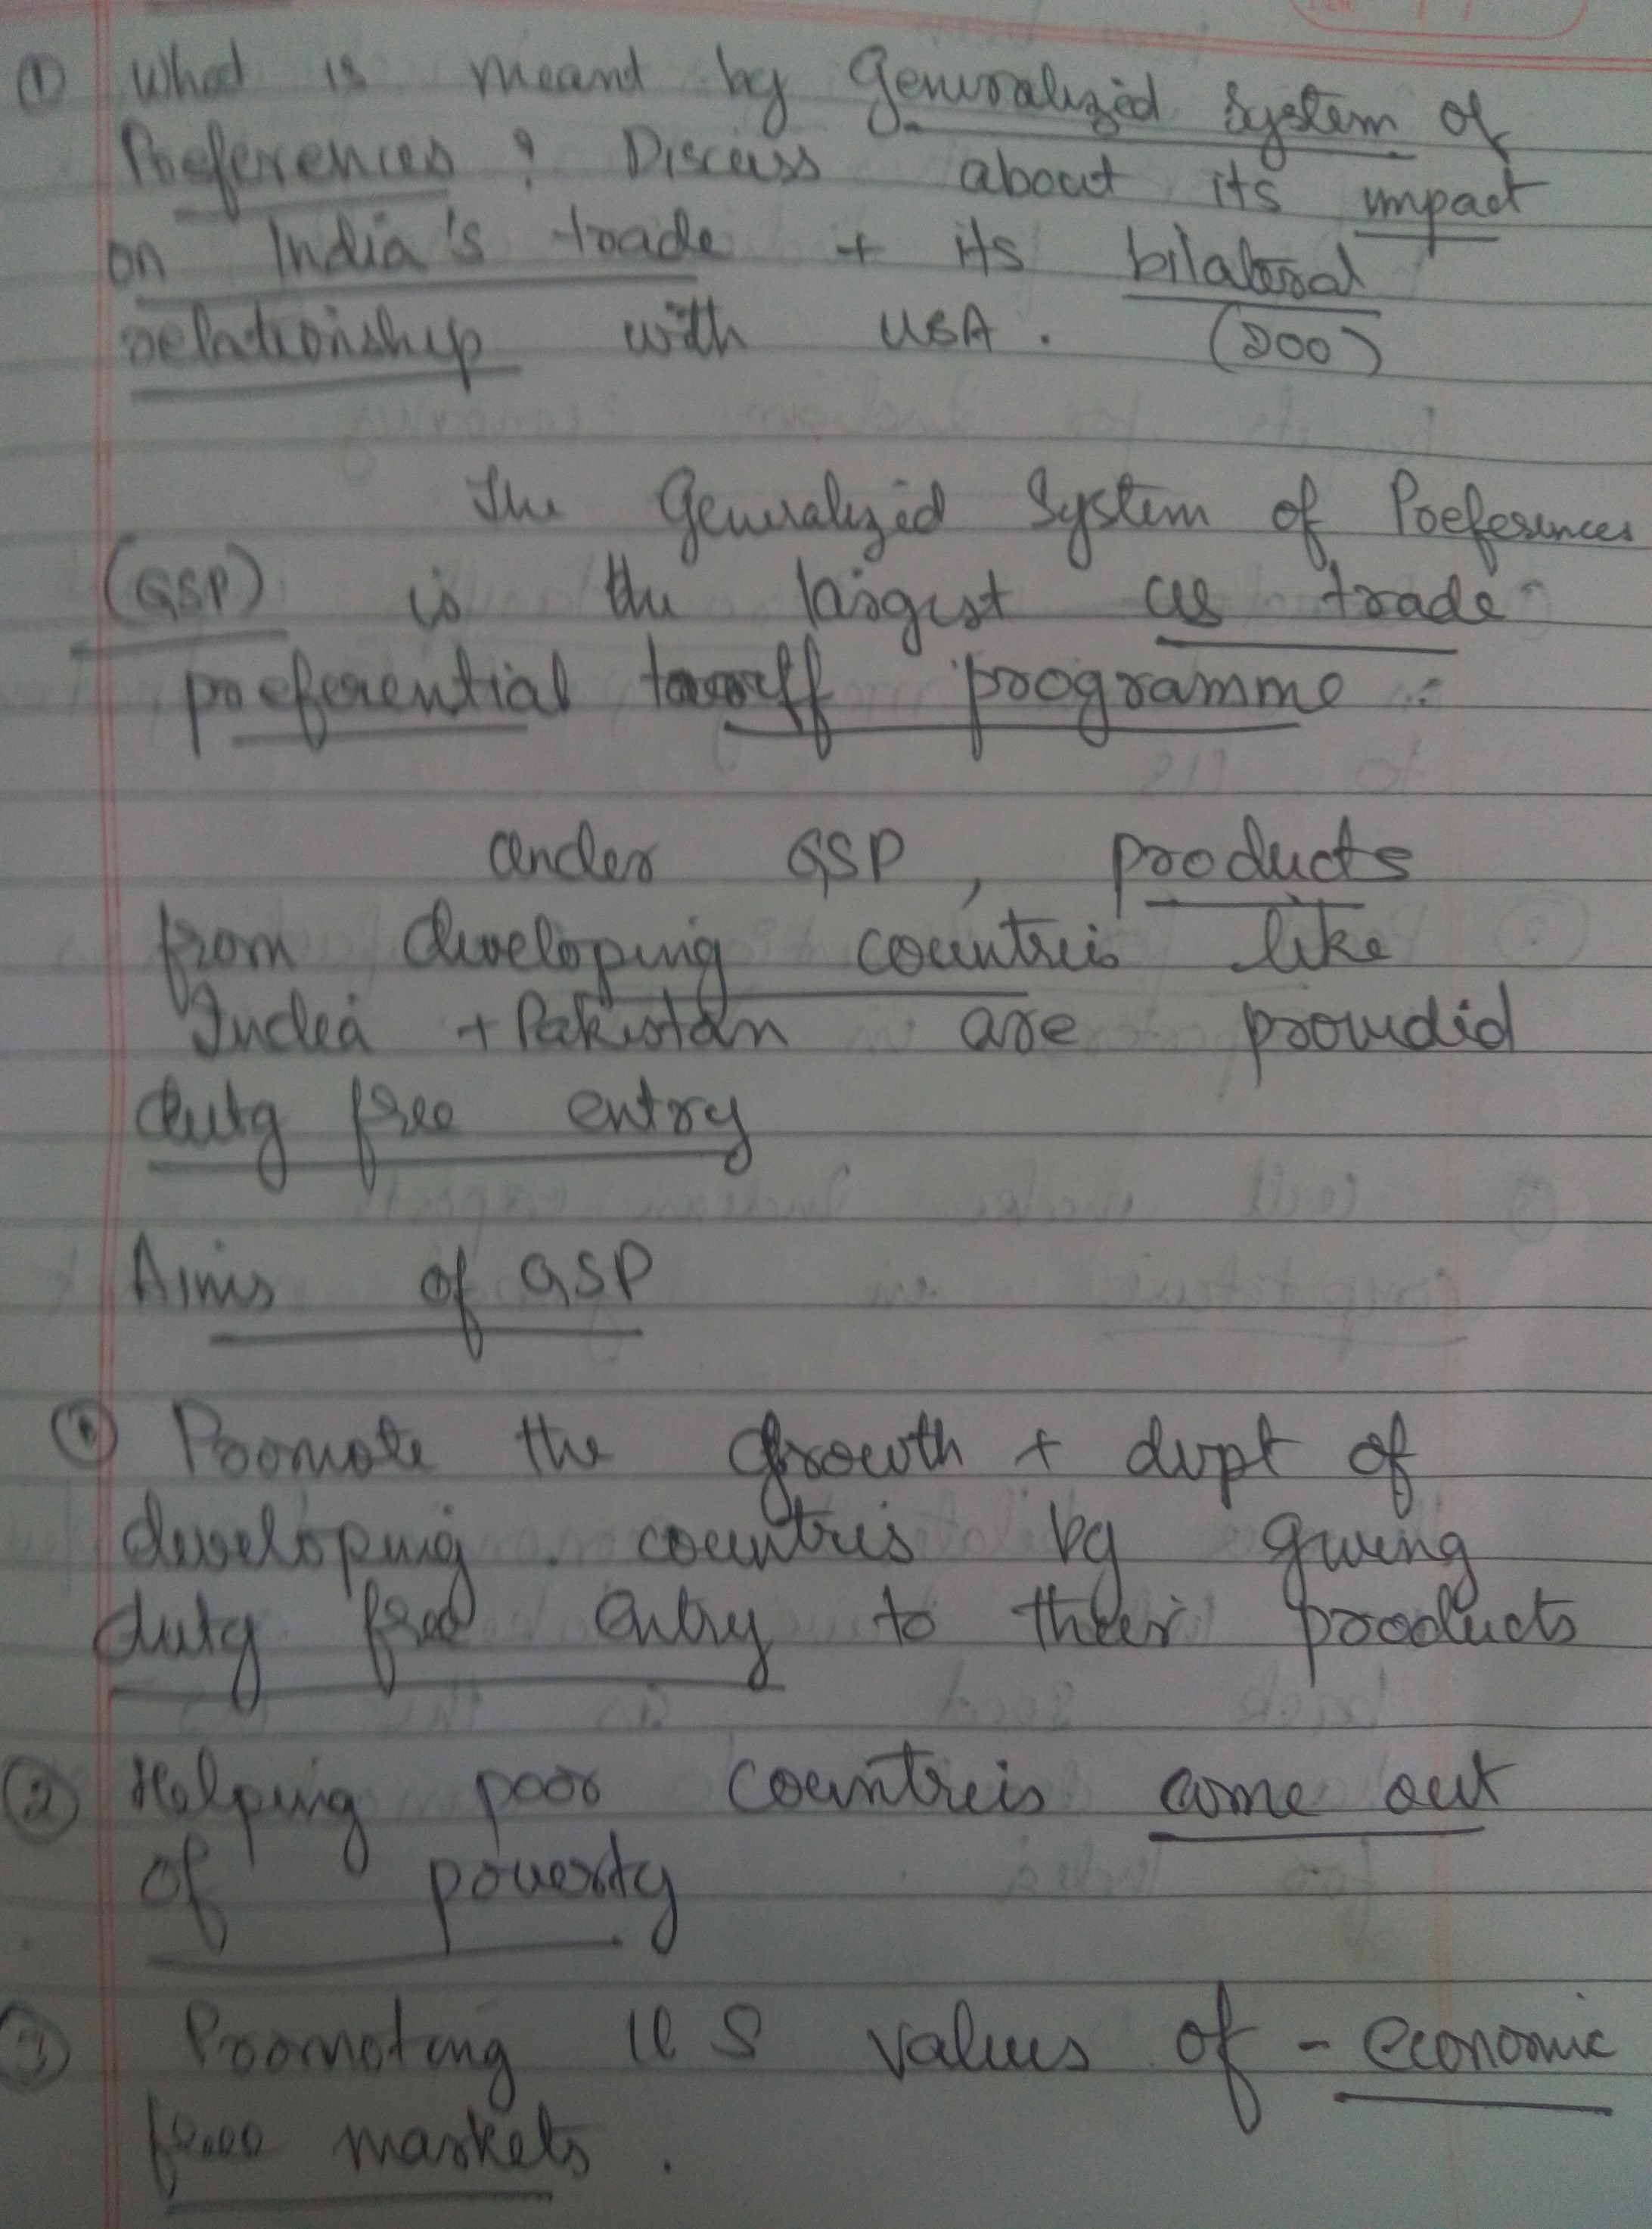 ① What is meant by Generalized System of
Preferences ? Discuss about its impact
on India's trade + its bilateral
relationship with USA . (200)
The Generalized System of Preferences
(GSP) is the largest US trade
preferential tariff programme .
Under GSP , products
from developing countries like
India + Pakistan are provided
duty free entry
Aims of GSP
① Promote the Growth + dvpt of
developing countries by giving
duty free entry to their products
② Helping poor countries come out
of poverty
③ Promoting US values of - economic
free markets .